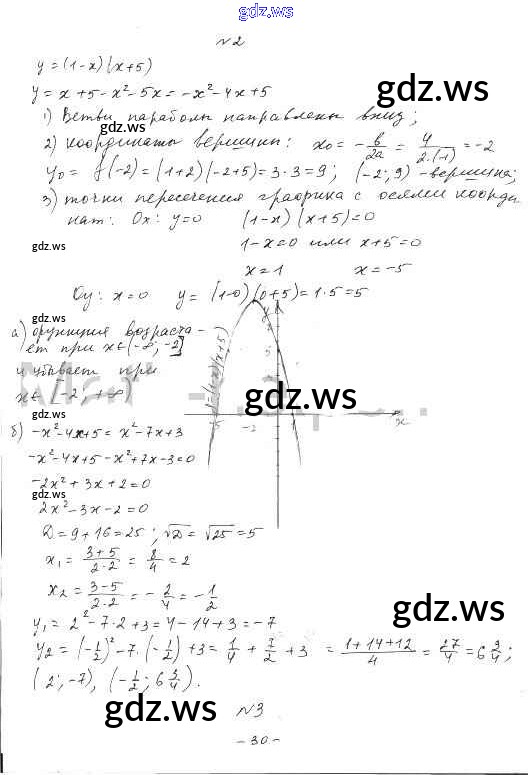 gdz.ws
№2
y=(1-x)(x+5)
y=x+5-x²-5x=-x²-4x+5
gdz.ws
1) Ветви параболы направлены вниз;
gdz.ws
2) координаты вершины: x₀ = -в/2a = 4/2·(-1) = -2
y₀ = f(-2) = (1+2)(-2+5)=3·3=9; (-2; 9) - вершина;
3) точки пересечения графика с осями коорди
нат: Ox: y=0 (1-x)(x+5)=0
gdz.ws
1-x=0 или x+5=0
x=1 x=-5
gdz.ws
Oy: x=0 y = (1-0)(0+5)=1·5=5
а) функция возраста-
ет при x∈(-∞; -2]
gdz.ws
и убывает при
x∈ -2; +∞
y=(1-x)(x+5)
y
5
-5
-2
x
gdz.ws
б) -x²-4x+5=x²-7x+3
gdz.ws
-x²-4x+5-x²+7x-3=0
-2x²+3x+2=0
gdz.ws
2x²-3x-2=0
D=9+16=25; √D=√25=5
gdz.ws
x₁ = 3+5/2·2 = 8/4 = 2
x₂ = 3-5/2·2 = -2/4 = -1/2
gdz.ws
y₁ = 2²-7·2+3=4-14+3=-7
gdz.ws
y₂ = (-1/2)²-7·(-1/2)+3 = 1/4 + 7/2 + 3 = 1+14+12/4 = 27/4 = 6 3/4;
(2; -7), (-1/2; 6 3/4).
gdz.ws
gdz.ws
№3
- 30 -